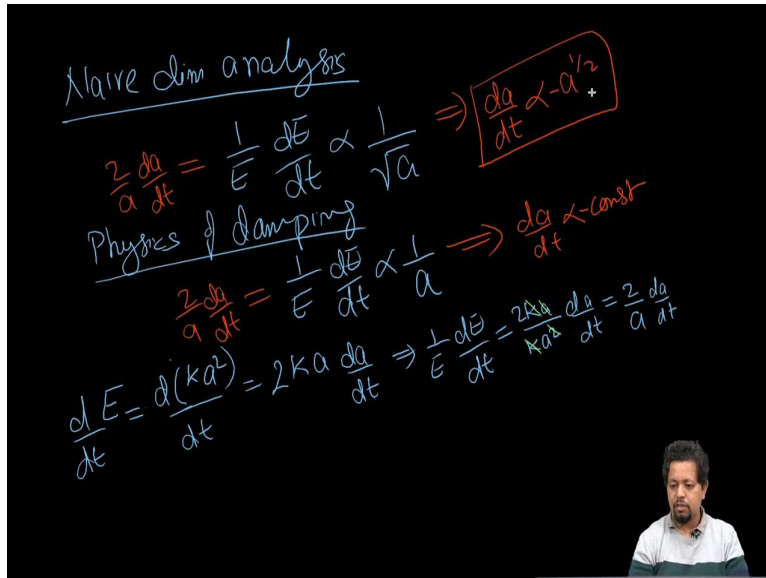 Naive dim analysis
2/a da/dt = 1/E dE/dt ∝ 1/√a ⇒ da/dt ∝ -a^1/2
Physics of damping
2/a da/dt = 1/E dE/dt ∝ 1/a ⇒ da/dt ∝ -const
d/dt E = d(Ka²)/dt = 2Ka da/dt ⇒ 1/E dE/dt = 2Ka/Ka² da/dt = 2/a da/dt